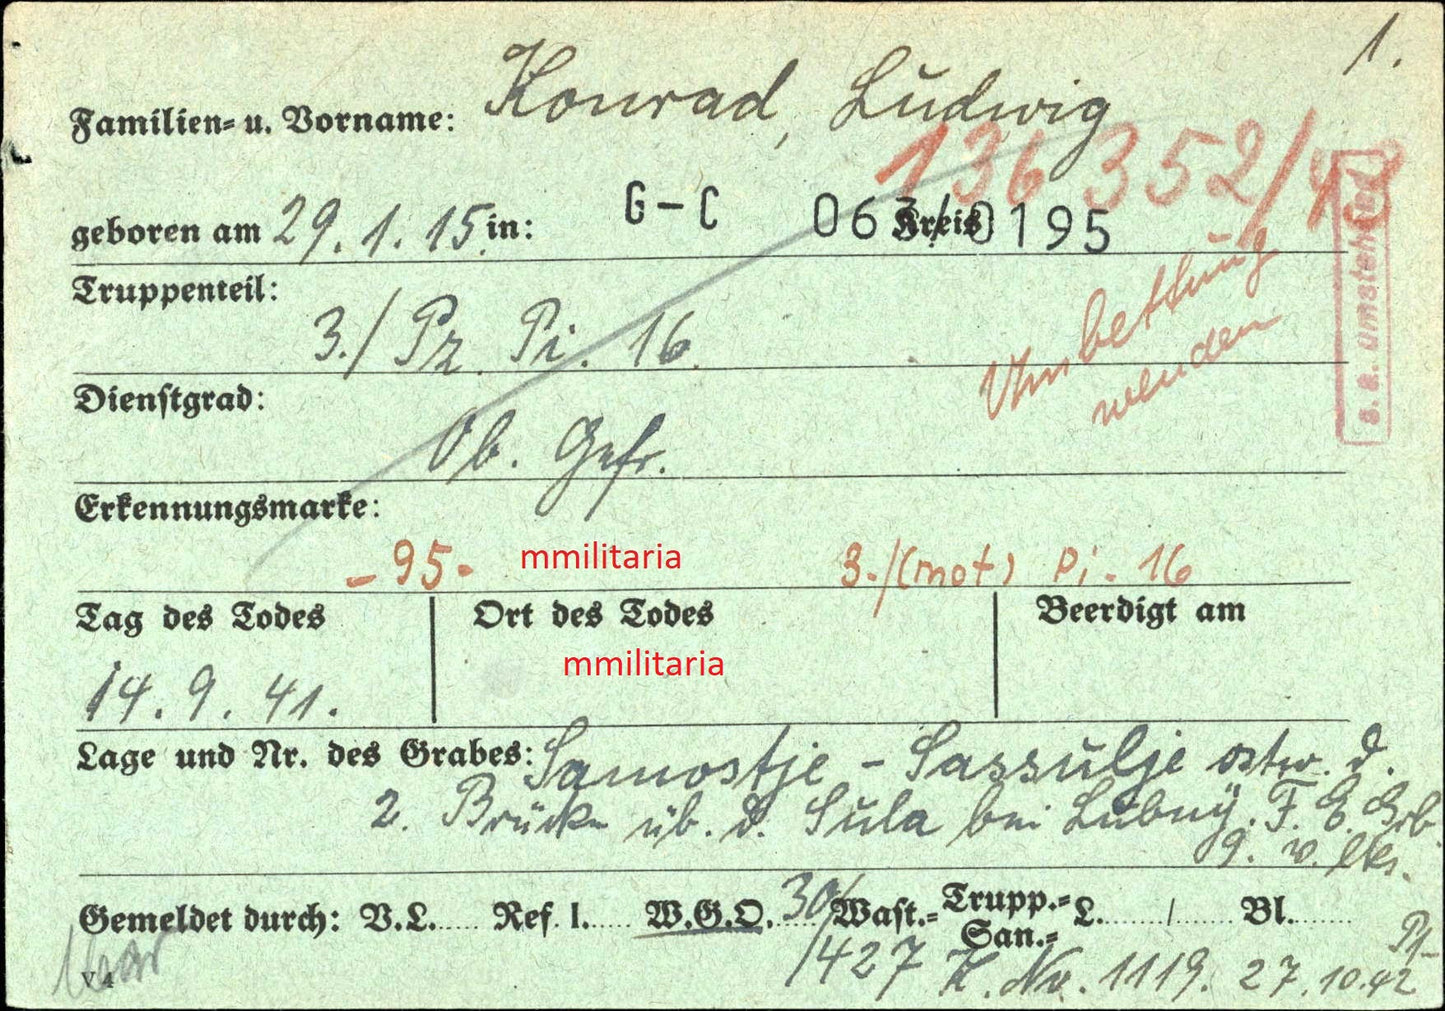 1.
Familien= u. Vorname: Konrad, Ludwig
136 352/48
geboren am 29. 1. 15 in: G-C 063/0195 Kreis
s. a. umstehend
Truppenteil: 3./ Pz. Pi. 16.
Umbettung
wenden
Dienstgrad: Ob. Gefr.
Erkennungsmarke:
- 95 - mmilitaria 3./(mot) Pi. 16
Tag des Todes Ort des Todes Beerdigt am
14. 9. 41. mmilitaria
Lage und Nr. des Grabes: Samostje - Sassulje ostw. d.
2. Brücke üb. d. Sula bei Lubny. F. E. Grb.
9. v. lks.
Gemeldet durch: V.L..... Ref. I..... W.G.O. 30/ Wast.= Trupp.= San.= L......./...... Bl.......
/427 K. Nr. 1119. 27.10.42
V 4